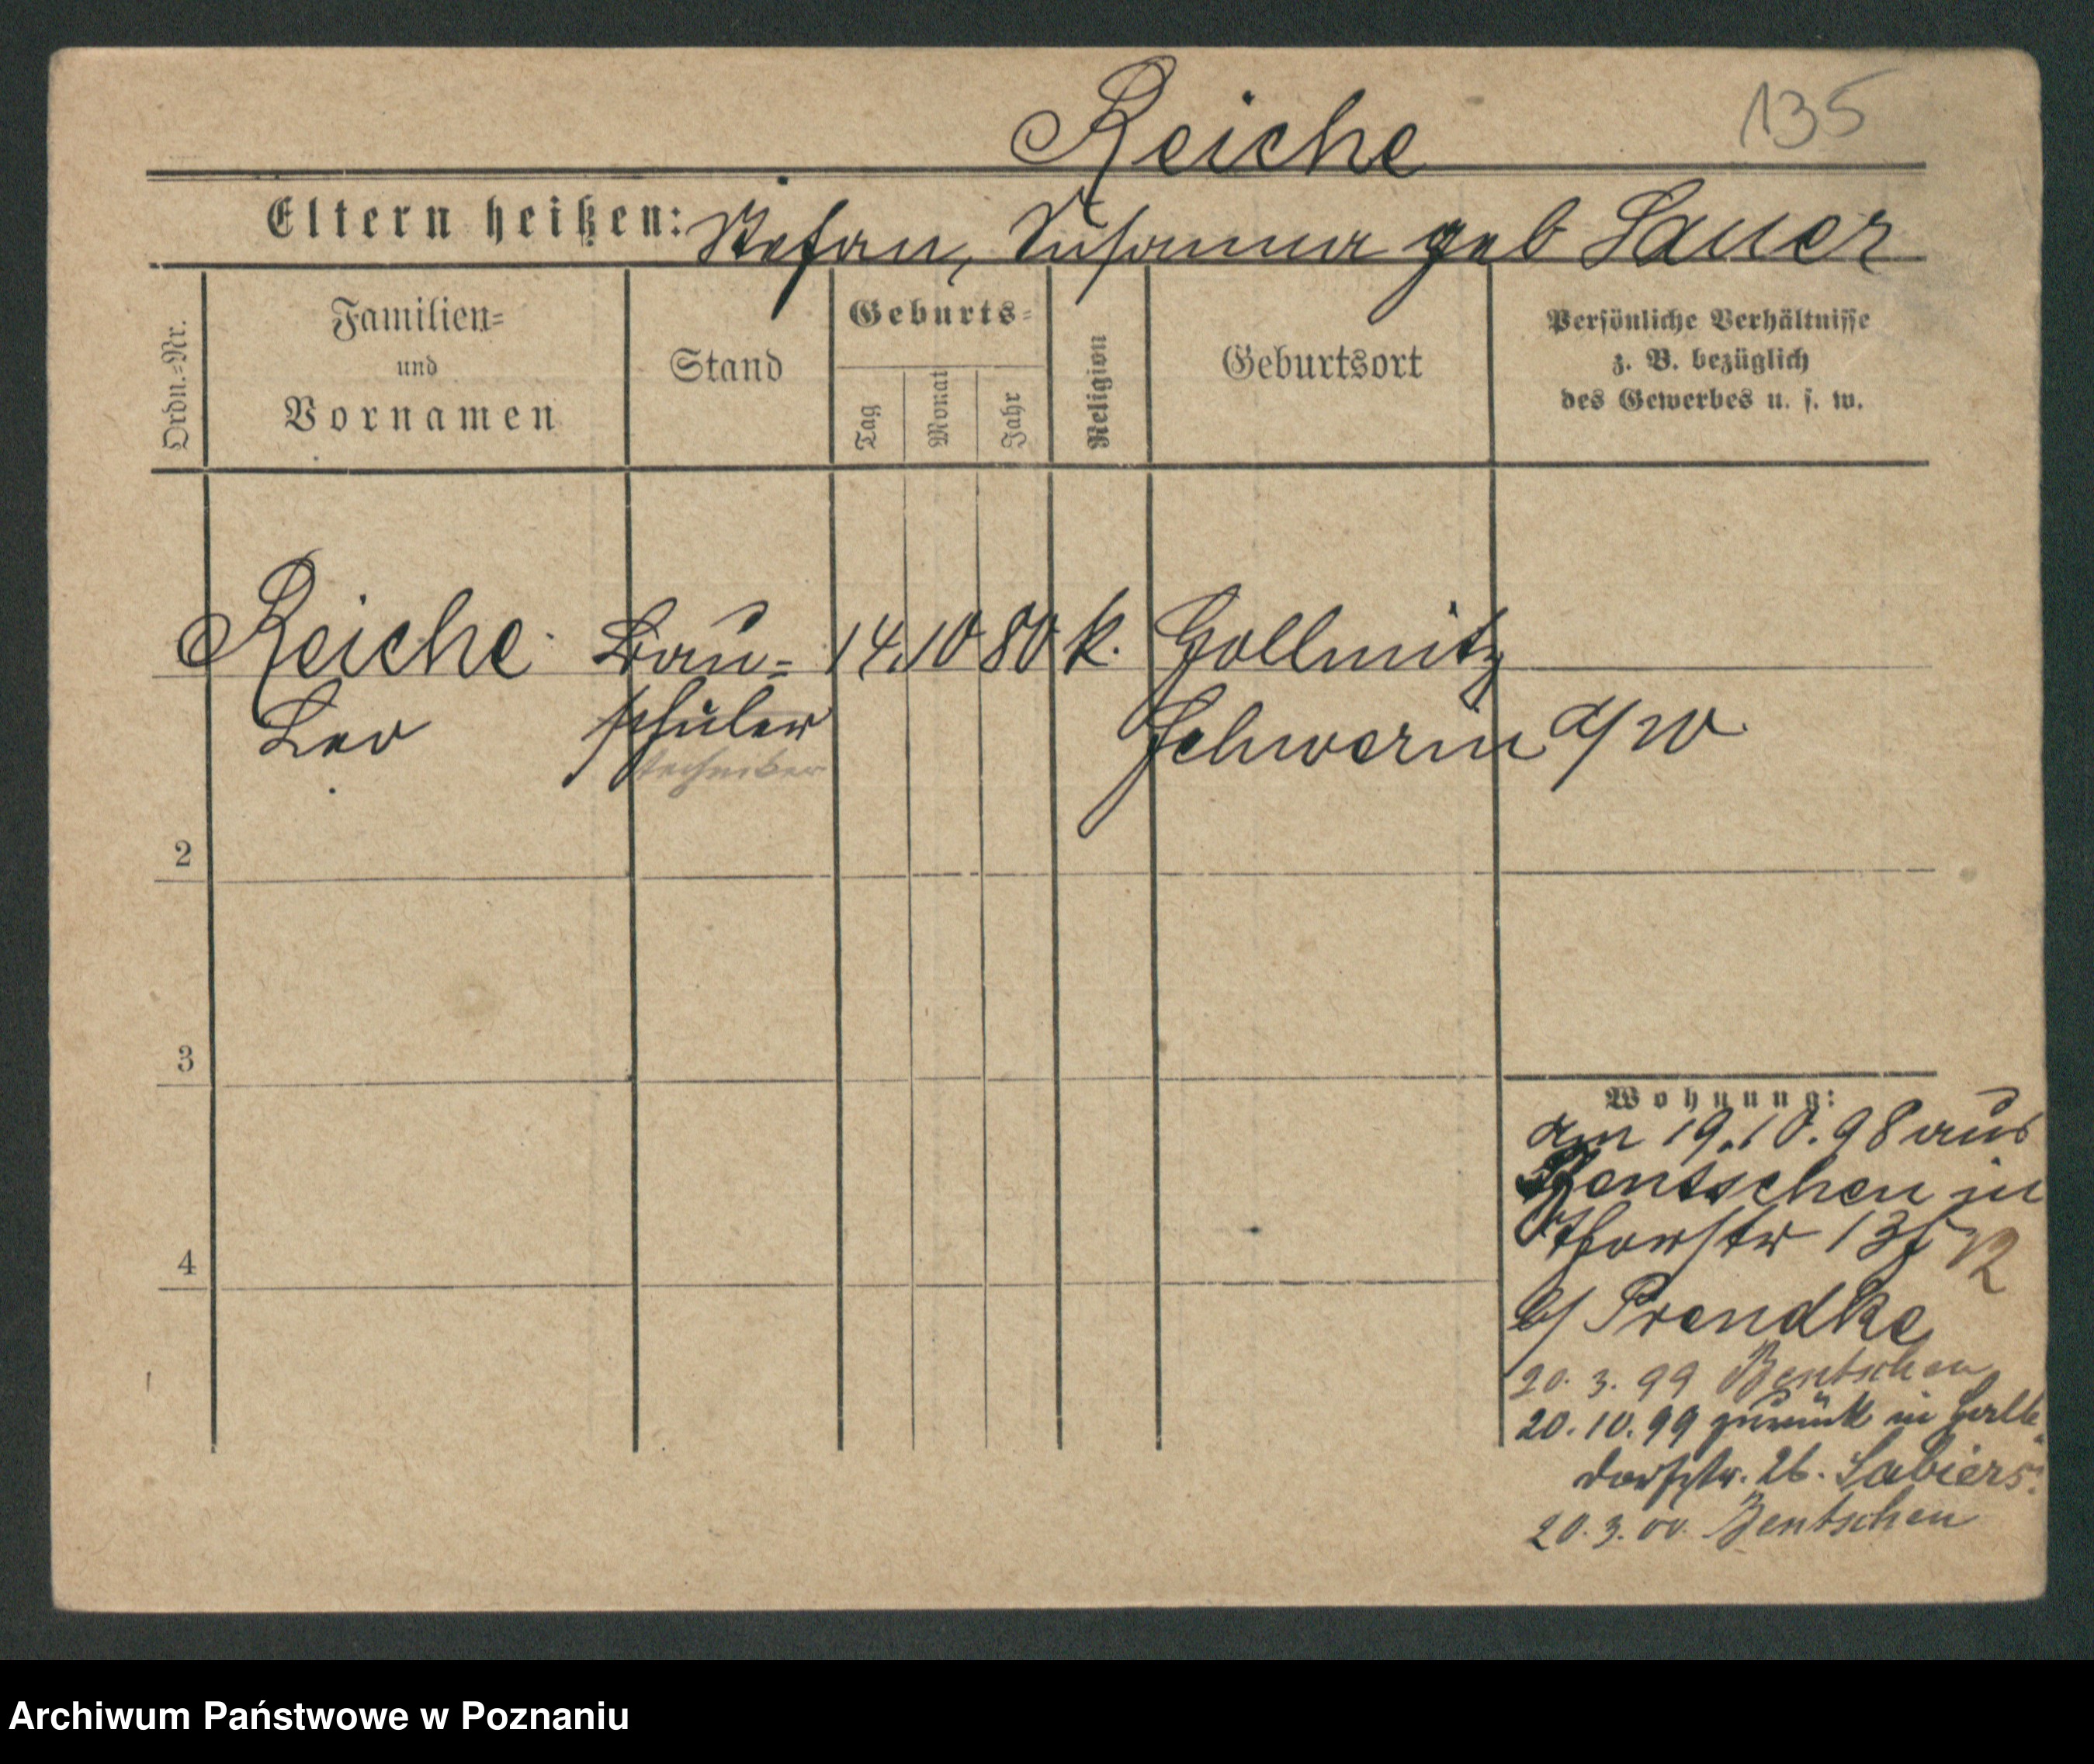 135
Reiche
Eltern heißen: Stefan, Susanna geb Sauer
Ordn.-Nr.
Familien-
und
Vornamen
Stand
Geburts-
Tag
Monat
Jahr
Religion
Geburtsort
Persönliche Verhältnisse
z. B. bezüglich
des Gewerbes u. s. w.
Reiche Bau- 14. 10 80 k. Gollmitz
Leo schüler Schwerin a/W
techniker
2
3
4
Wohnung:
am 19.10.98 aus
Bentschen in
Thorstr 13
b/ Prendke
20. 3. 99 Bentschen
20. 10. 99 zurück in Halb
dorfstr. 26. Sabiers
20. 3. 00. Bentschen
Archiwum Państwowe w Poznaniu